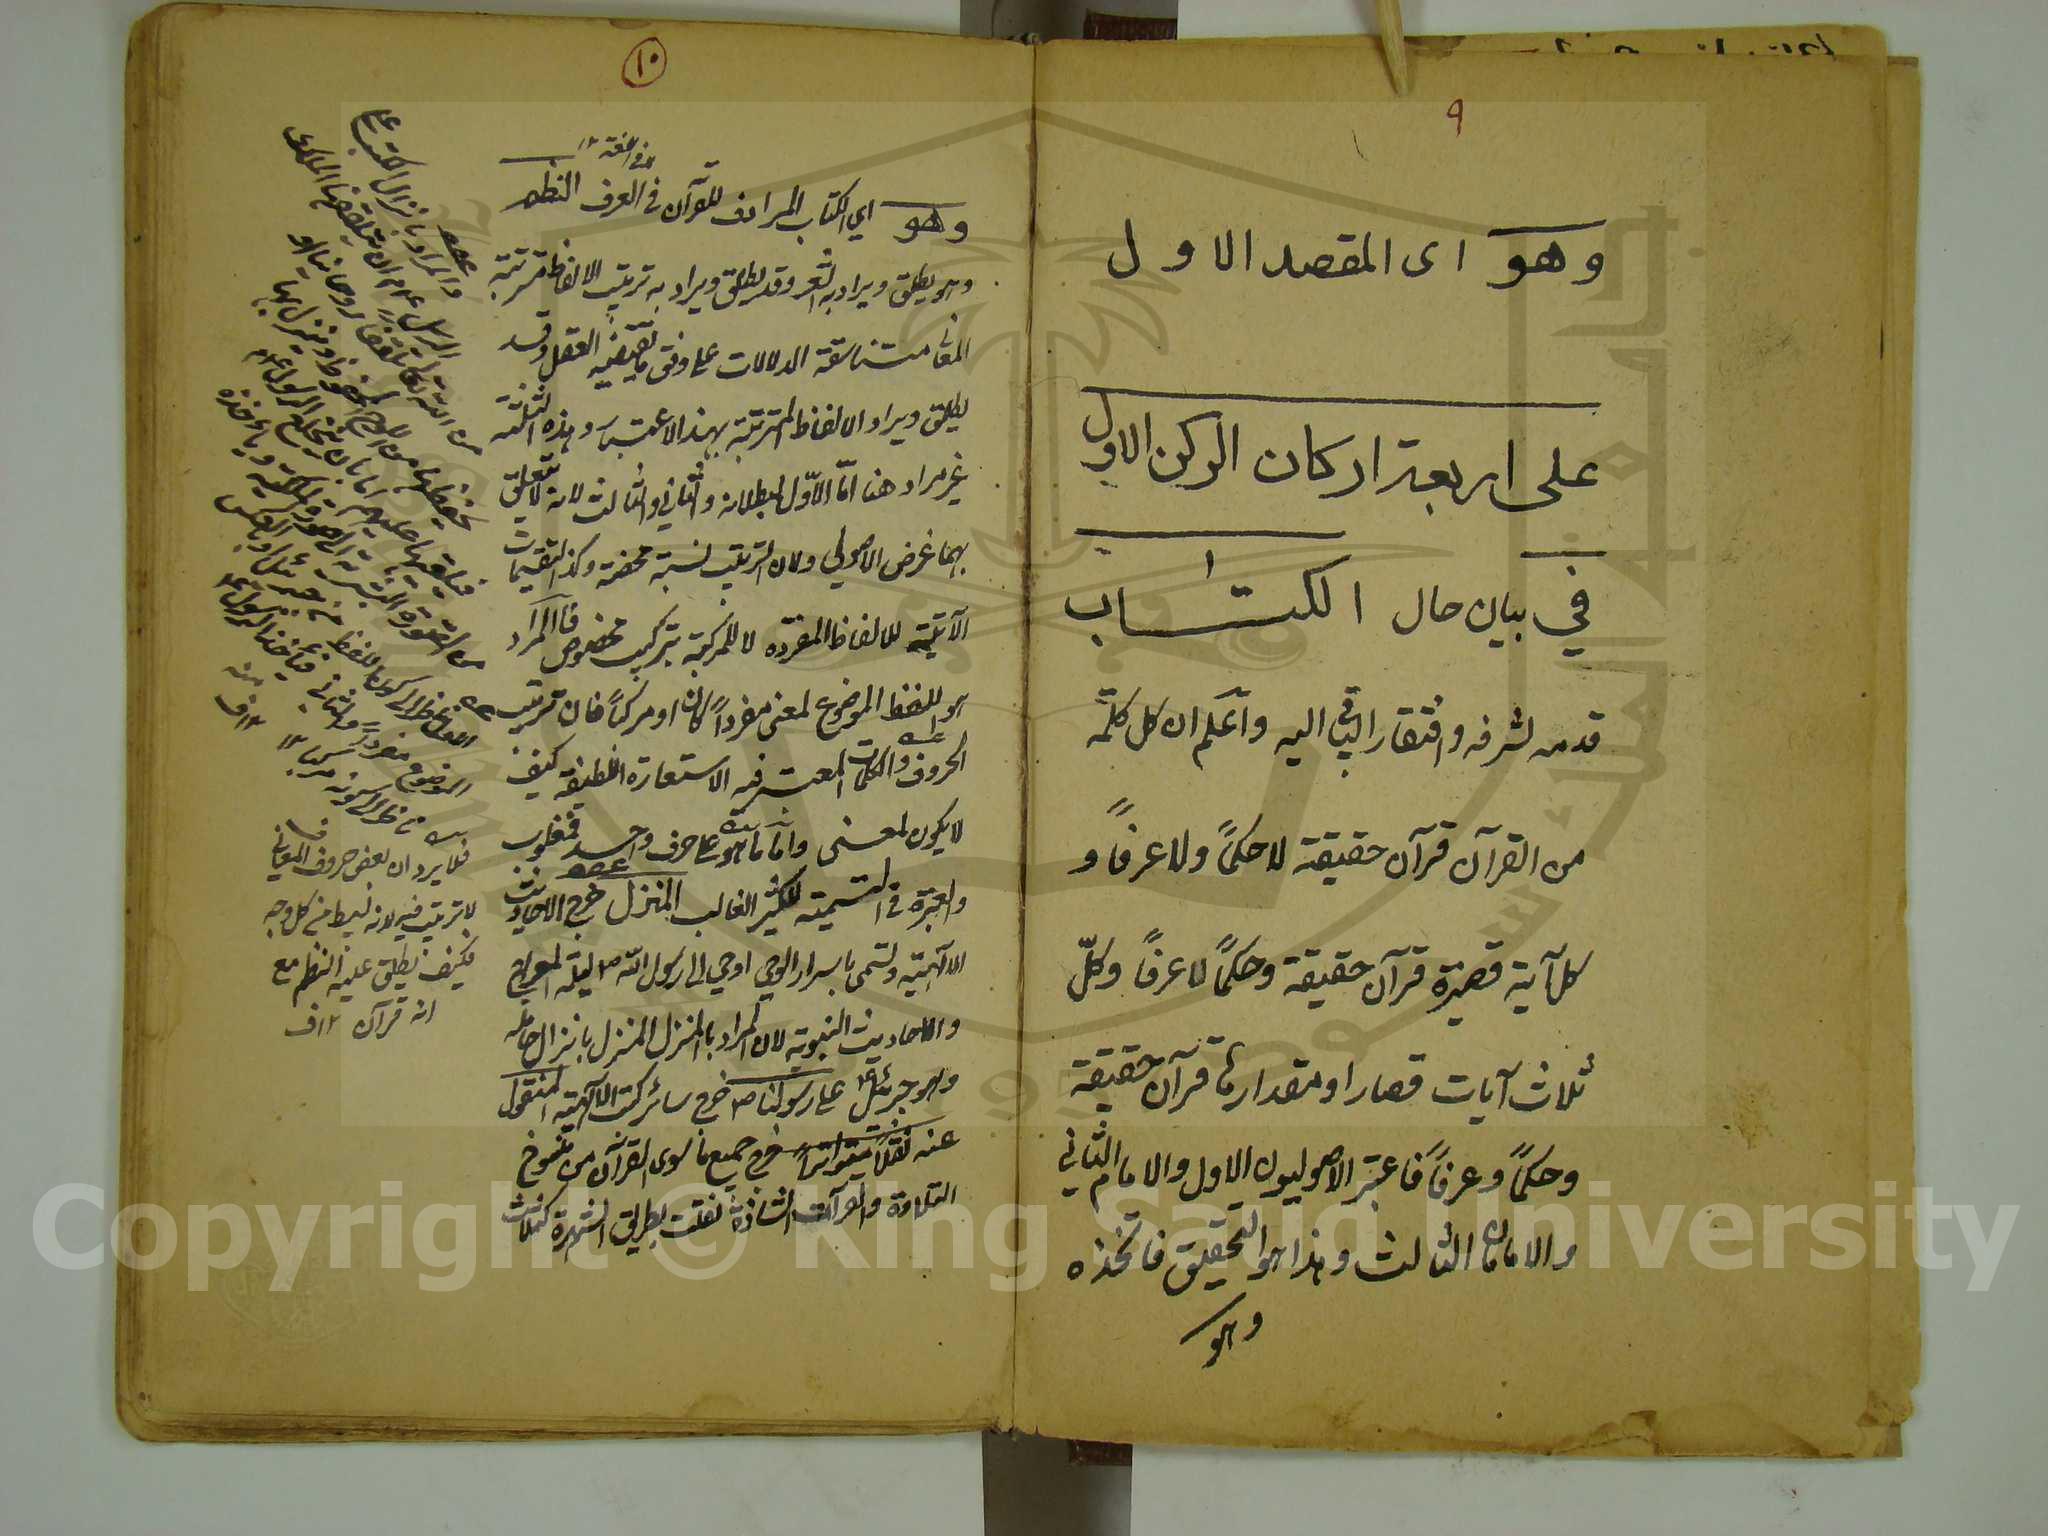 ٩
وهو اى المقصد الاول
على اربعة اركان الركن الاول
في بيان حال الكتاب
قدمه لشرفه وافتقار الباقي اليه واعلم ان كل كلمة
من القرآن قرآن حقيقة لا حكماً ولا عرفاً و
كل آية قصيرة قرآن حقيقة وحكماً لا عرفاً وكلّ
ثلاث آيات قصار او مقدارها قرآن حقيقة
وحكماً وعرفاً فاعتبر الاصوليون الاول والامام الثاني
والامامان الثالث وهذا هو التحقيق فاتخذه
وهو
١٠
وهو اي الكتاب المرادف للقرآن في العرف النظم
لا في اللغة ١٢
وهو يطلق ويراد به الشعر وقد يطلق ويراد به ترتيب الالفاظ مترتبة
المعاني متناسقة الدلالات على وفق ما يقتضيه العقل وقد
يطلق ويراد الالفاظ المترتبة بهذا الاعتبار وهذه الثلثة
غير مراد هنا امّا الاوّل لبطلانه والثاني والثالث لانه لا يتعلق
بهما غرض الاصولي ولان الترتيب نسبة محضة وكذا التقسيمات
الآتية للالفاظ المفردة لا للمركبة بتركيب مخصوص فالمراد
هو اللفظ الموضوع لمعنى مفرداً كان او مركباً فان ترتيب
الحروف والكلمات المعتبر فيه الاستعارة اللطيفة كيف
لا يكون لمعنى واما ما هو على حرف واحد فمغلوب
والعبرة في التسمية للكثير الغالب المنزل خرج الاحاديث
الالهية وتسمى باسرار الوحي اوحي الى رسول الله ص ليلة المعراج
والاحاديث النبوية لان المراد بالمنزل المنزل بانزال حامله
وهو جبرئيل ع على رسولنا ص خرج سائر كتب الالهية المنقول
عنه نقلاً متواتراً خرج جميع ما سوى القرآن من منسوخ
التلاوة والقرآات الشاذة نقلت بطريق الشهرة كثلاث
والمراد بانزال الكتب على
الرسل ع م ان يتلقفها الملك
من الله تعالى تلقفاً روحانيا او
يحفظها من اللوح المحفوظ وينزل بها
فلا يرد ان بعض حروف المعاني
لا ترتيب فيه لانه بسيط من كل وجه
فكيف يطلق عليه النظم مع
انه قرآن ١٢ ف
Copyright © King Saud University